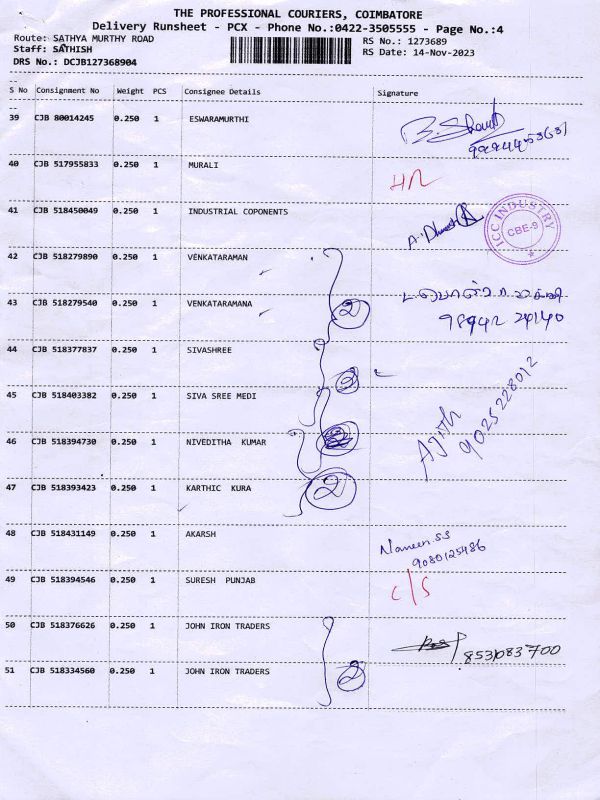 THE PROFESSIONAL COURIERS, COIMBATORE
Delivery Runsheet - PCX - Phone No.:0422-3505555 - Page No.:4
Route: SATHYA MURTHY ROAD RS No.: 1273689
Staff: SATHISH RS Date: 14-Nov-2023
DRS No.: DCJB127368904
S No Consignment No Weight PCS Consignee Details Signature
39 CJB 80014245 0.250 1 ESWARAMURTHI
40 CJB 517955833 0.250 1 MURALI
41 CJB 518450049 0.250 1 INDUSTRIAL COPONENTS
ICC INDUSTRY
CBE-9
42 CJB 518279890 0.250 1 VENKATARAMAN
43 CJB 518279540 0.250 1 VENKATARAMANA 2
98942 24140
44 CJB 518377837 0.250 1 SIVASHREE
2
45 CJB 518403382 0.250 1 SIVA SREE MEDI
46 CJB 518394730 0.250 1 NIVEDITHA KUMAR
Ajith
9025228012
47 CJB 518393423 0.250 1 KARTHIC KURA 2
48 CJB 518431149 0.250 1 AKARSH
Naveen.SS
9080125486
49 CJB 518394546 0.250 1 SURESH PUNJAB C/S
50 CJB 518376626 0.250 1 JOHN IRON TRADERS
51 CJB 518334560 0.250 1 JOHN IRON TRADERS 2